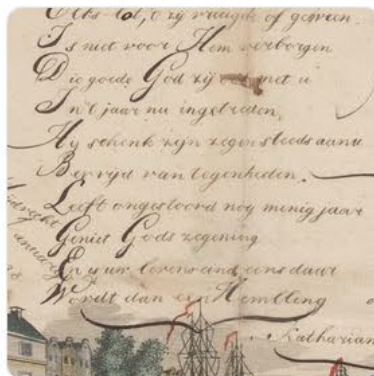 Elks lot, t zij vreugde of geween.
Is niet voor Hem verborgen
Die goede God zij ook met u
In 't jaar nu ingetreden,
Hij schenk zijn zegen steeds aan u
Bevrijd van tegenheden.
Leeft ongestoord nog menig jaar
Geniet Gods zegening
En is uw levenseind eens daar
Wordt dan een Hemelling
Katharian